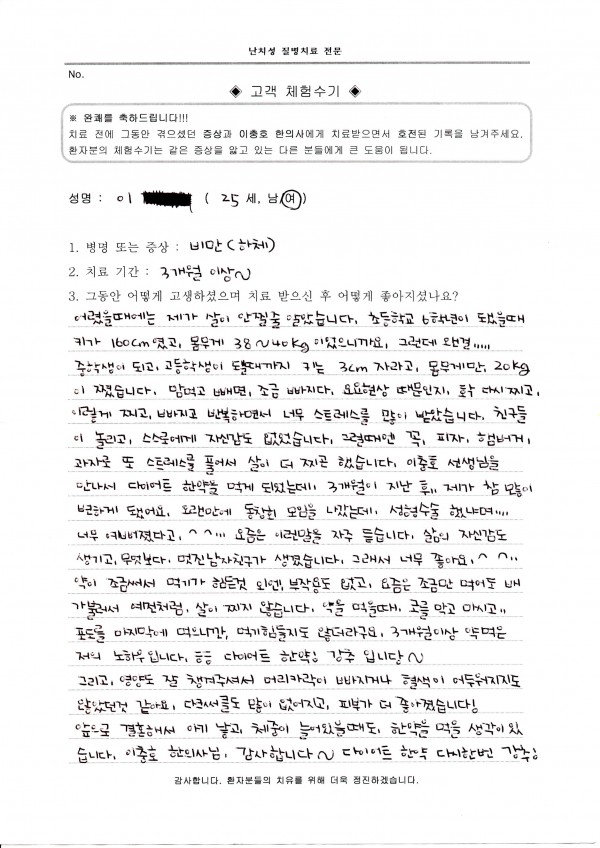 난치성 질병치료 전문
No.
◈ 고객 체험수기 ◈
※ 완쾌를 축하드립니다!!!
치료 전에 그동안 겪으셨던 증상과 이충호 한의사에게 치료받으면서 호전된 기록을 남겨주세요.
환자분의 체험수기는 같은 증상을 앓고 있는 다른 분들에게 큰 도움이 됩니다.
성명 : 이 ( 25 세, 남,여)
1. 병명 또는 증상 : 비만(하체)
2. 치료 기간 : 3개월 이상~
3. 그동안 어떻게 고생하셨으며 치료 받으신 후 어떻게 좋아지셨나요?
어렸을때에는 제가 살이 안찔줄 알았습니다. 초등학교 6학년이 되었을때
키가 160cm였고, 몸무게 38~40kg이었으니까요, 그런데 왠걸,,,,,
중학생이 되고, 고등학생이 될때까지 키는 3cm 자라고, 몸무게만, 20kg
이 쪘습니다. 맘먹고 빼면, 조금 빠지다, 요요현상 때문인지, 확 다시찌고,
이렇게 찌고, 빠지고 반복하면서 너무 스트레스를 많이 받았습니다. 친구들
이 놀리고, 스스로에게 자신감도 없었습니다. 그럴때엔 꼭, 피자, 햄버거,
과자로 또 스트레스를 풀어서 살이 더 찌곤 했습니다. 이충호 선생님을
만나서 다이어트 한약을 먹게 되었는데, 3개월이 지난 후,, 제가 참 많이
변하게 됐어요. 오랜만에 동창회 모임을 나갔는데, 성형수술 했냐며,,,,
너무 예뻐졌다고, ^^,,, 요즘은 이런말을 자주 듣습니다. 삶의 자신감도
생기고, 무엇보다. 멋진남자친구가 생겼습니다. 그래서 너무 좋아요,^^,,
약이 조금써서 먹기가 힘든것 외엔, 부작용도 없고, 요즘은 조금만 먹어도 배
가불러서 예전처럼, 살이 찌지 않습니다. 약을 먹을때, 코를 막고 마시고,,
포도를 마지막에 먹으니깐, 먹기힘들지도 않더라구요, 3개월이상 약먹은
저의 노하우입니다, 다이어트 한약! 강추 입니당~
그리고, 영양도 잘 챙겨주셔서 머리카락이 빠지거나 혈색이 어두워지지도
않았던것 같아요, 다크써클도 많이 없어지고, 피부가 더 좋아졌습니다!
앞으로 결혼해서 아기 낳고, 체중이 늘어있을때도, 한약을 먹을 생각이 있
습니다, 이충호 한의사님, 감사합니다~ 다이어트 한약 다시한번 강추!
감사합니다. 환자분들의 치유를 위해 더욱 정진하겠습니다.